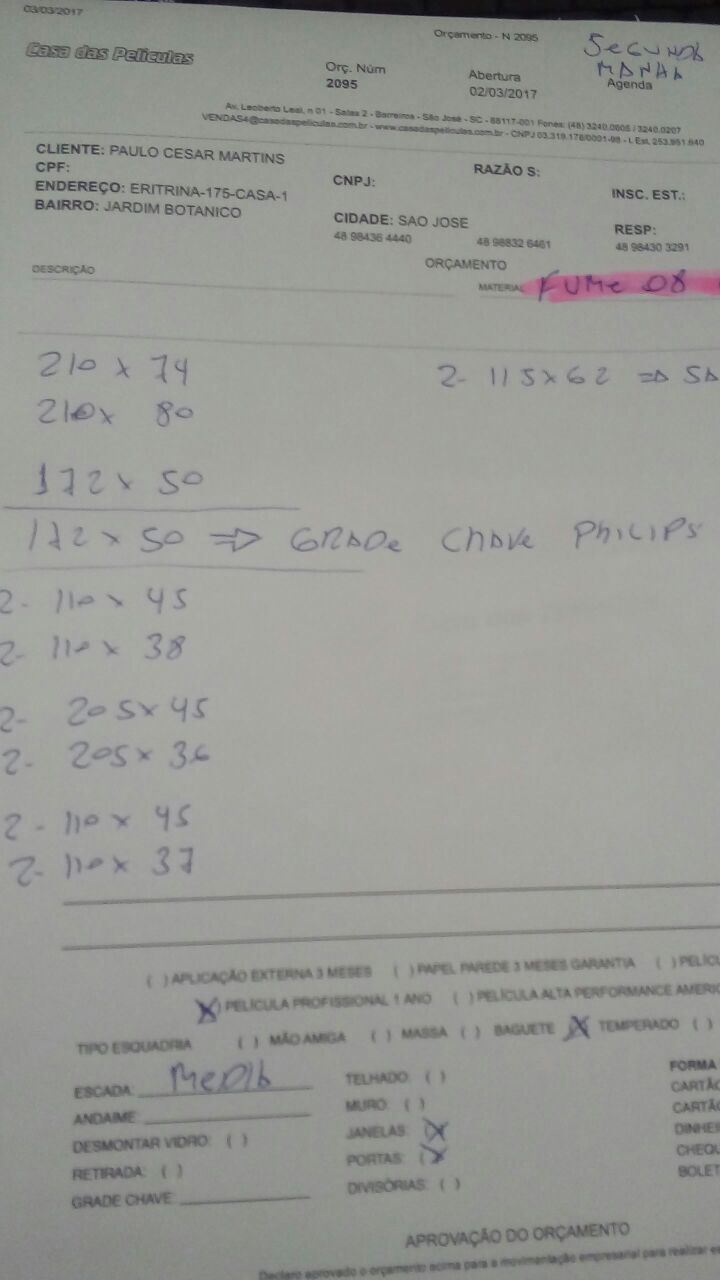 03/03/2017
Orçamento - N 2095
SEGUNDA
MANHA
Casa das Películas
Orç. Núm
2095
Abertura
02/03/2017
Agenda
Av. Leoberto Leal, n 01 - Salas 2 - Barreiros - São José - SC - 88117-001 Fones: (48) 3240.0605 / 3240.0207
VENDAS4@casadaspeliculas.com.br - www.casadaspeliculas.com.br - CNPJ 03.319.176/0001-98 - I. Est. 253.951.640
CLIENTE: PAULO CESAR MARTINS
CPF:
CNPJ:
RAZÃO S:
INSC. EST.:
ENDEREÇO: ERITRINA-175-CASA-1
BAIRRO: JARDIM BOTANICO
CIDADE: SAO JOSE
RESP:
48 98436 4440
48 98832 6461
48 98430 3291
DESCRIÇÃO
ORÇAMENTO
MATERIAL
FUMê 08
210 x 74
2- 115x62 => SA
210x 80
172 x 50
172 x 50 => GRADE CHAVE PHILIPS
2- 110 x 45
2- 110 x 38
2- 205x45
2- 205x36
2- 110 x 45
2- 110x 37
( ) APLICAÇÃO EXTERNA 3 MESES ( ) PAPEL PAREDE 3 MESES GARANTIA ( ) PELÍCU
(X) PELÍCULA PROFISSIONAL 1 ANO ( ) PELÍCULA ALTA PERFORMANCE AMERIC
TIPO ESQUADRIA ( ) MÃO AMIGA ( ) MASSA ( ) BAGUETE (X) TEMPERADO ( )
ESCADA: MEDIA
TELHADO: ( )
FORMA
ANDAIME:
MURO: ( )
CARTÃO
DESMONTAR VIDRO: ( )
JANELAS: (X)
CARTÃ
RETIRADA: ( )
PORTAS: (X)
DINHEI
GRADE CHAVE:
DIVISÓRIAS: ( )
CHEQU
BOLET
APROVAÇÃO DO ORÇAMENTO
Declaro aprovado o orçamento acima para a movimentação empresarial para realizar